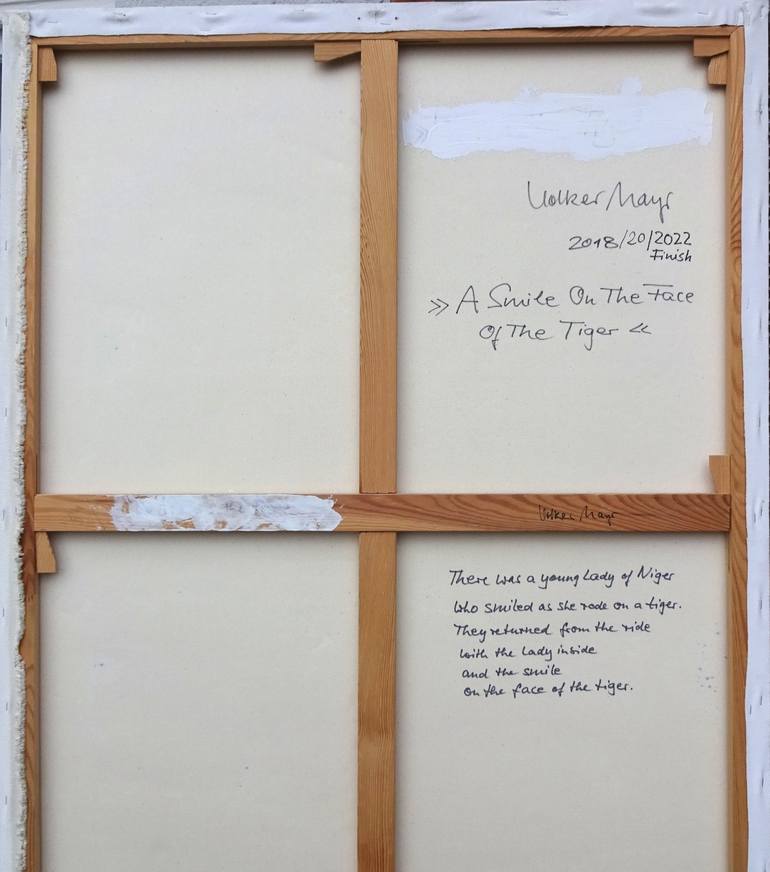 Volker Mayr
2018/20/2022
Finish
» A Smile On The Face
Of The Tiger «
Volker Mayr
There was a young Lady of Niger
who smiled as she rode on a tiger.
They returned from the ride
with the Lady inside
and the smile
on the face of the tiger.